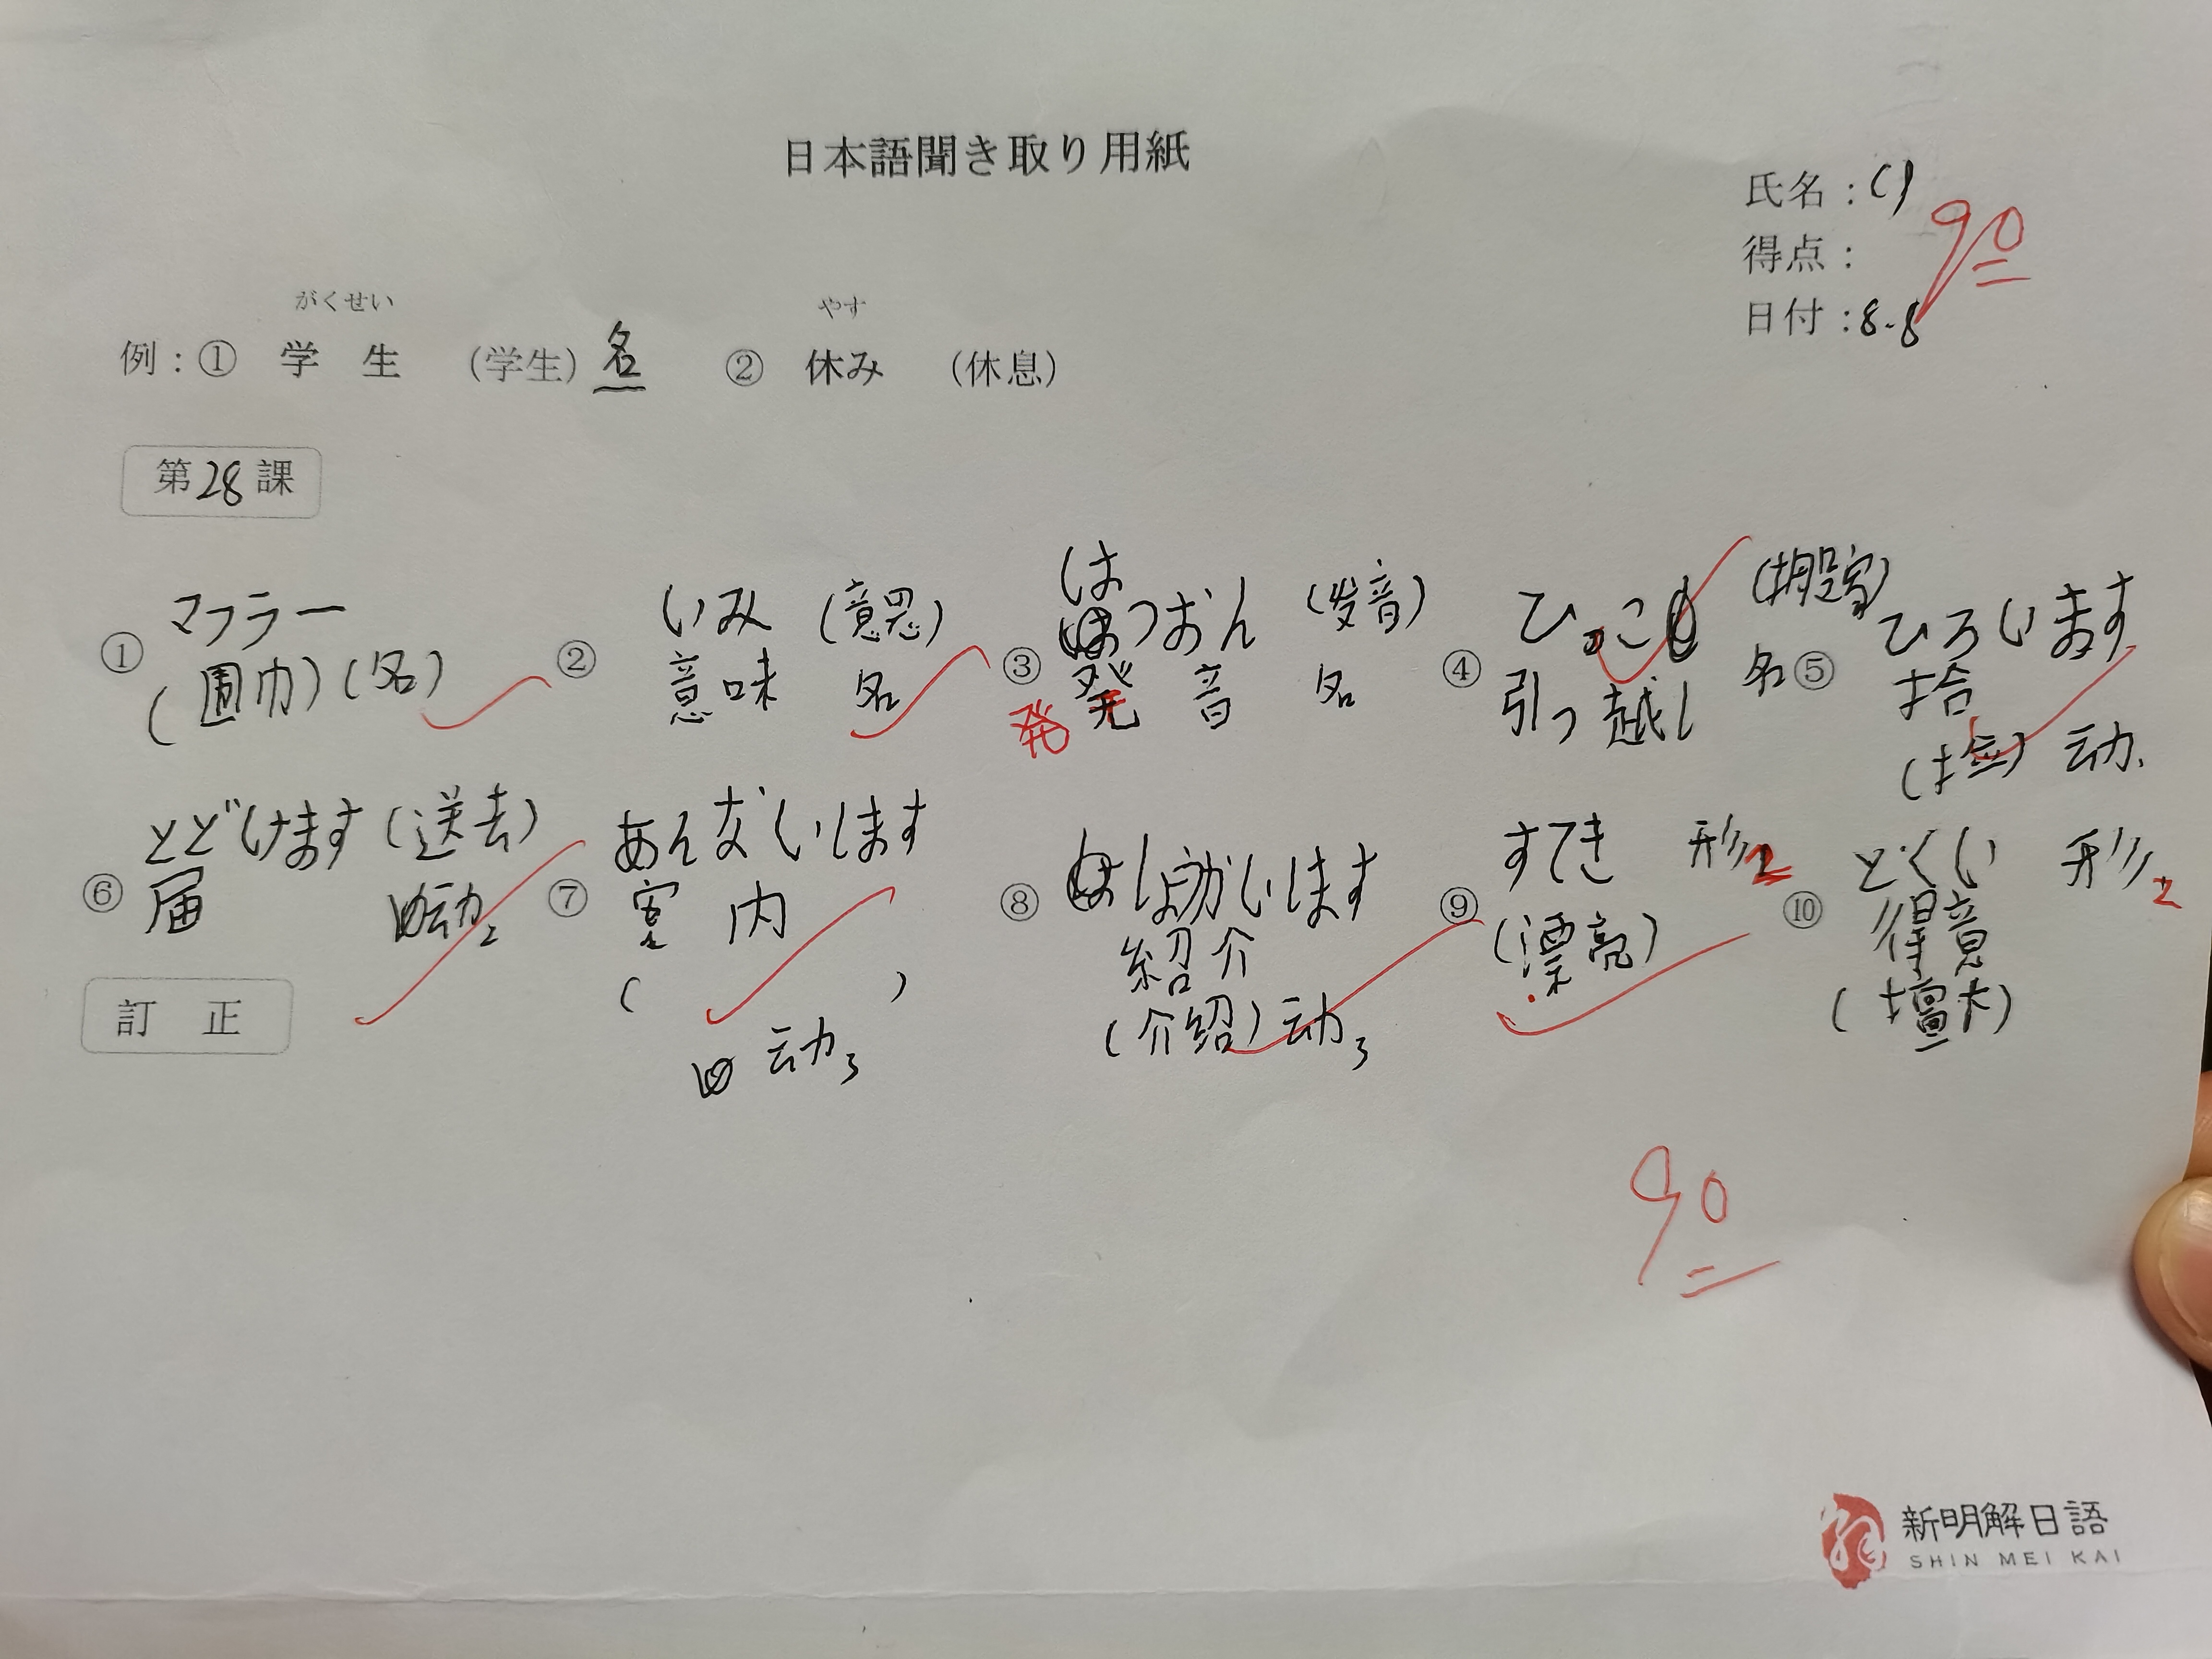 日本語聞き取り用紙
氏名：
得点： 90
日付：8.8
がくせい やす
例：① 学生 (学生) 名 ② 休み (休息)
第28課
① マフラー
(围巾) (名)
② いみ (意思)
意味 名
③ は
つおん (发音)
発音 名
発
④ ひっこし (搬家)
引っ越し 名
⑤ ひろいます
拾
(捡) 动.
⑥ とどけます (送去)
届 动2
⑦ あんないします
案内
( )
动3
⑧ しょうかいします
紹介
(介绍) 动3
⑨ すてき 形2
(漂亮)
⑩ とくい 形2
得意
(擅长)
訂正
90
新明解日語
SHIN MEI KAI